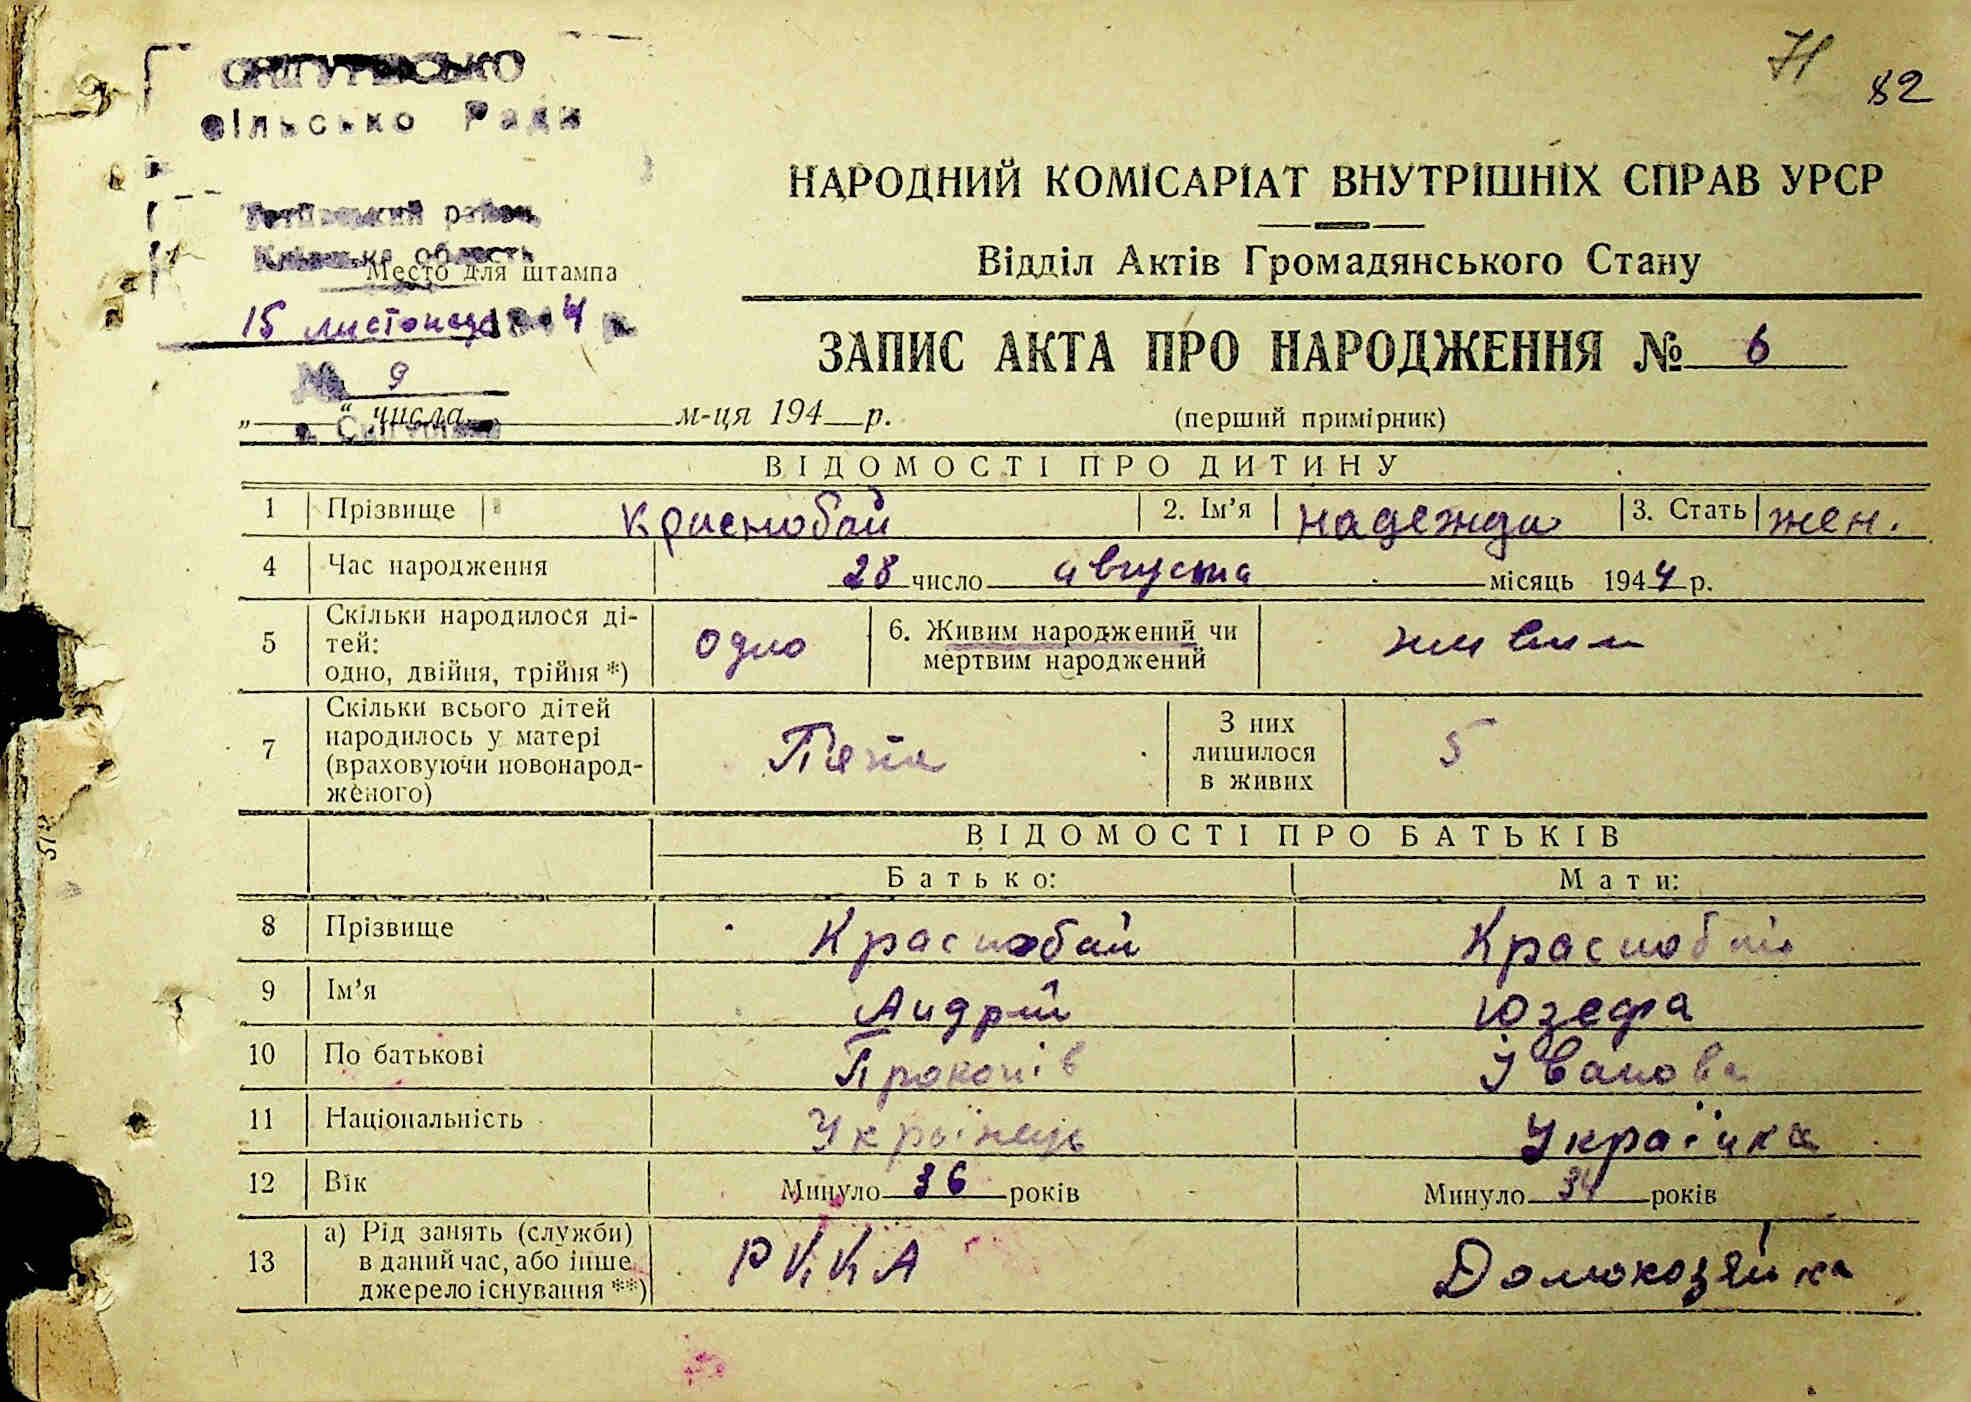 71
82
сільсько Ради
район,
Київська область
Место для штампа
15 листопада 1944 р.
№ 9
НАРОДНИЙ КОМІСАРІАТ ВНУТРІШНІХ СПРАВ УРСР
Відділ Актів Громадянського Стану
ЗАПИС АКТА ПРО НАРОДЖЕННЯ № 6
„ “ числа м-ця 194 р.
(перший примірник)
ВІДОМОСТІ ПРО ДИТИНУ
1 Прізвище Краснобай 2. Ім’я надежда 3. Стать жен.
4 Час народження 28 число августа місяць 1944 р.
5 Скільки народилося ді-
тей:
одно, двійня, трійня *) одно
6. Живим народжений чи
мертвим народжений живим
7 Скільки всього дітей
народилось у матері
(враховуючи новонарод-
женого)
З них
лишилося
в живих 5
ВІДОМОСТІ ПРО БАТЬКІВ
Батько: Мати:
8 Прізвище Краснобай Краснобай
9 Ім’я Андрій Юзефа
10 По батькові Прокопів Іванова
11 Національність Українець Українка
12 Вік Минуло 36 років Минуло 34 років
13 а) Рід занять (служби)
в даний час, або інше
джерело існування **) РККА Домохозяйка